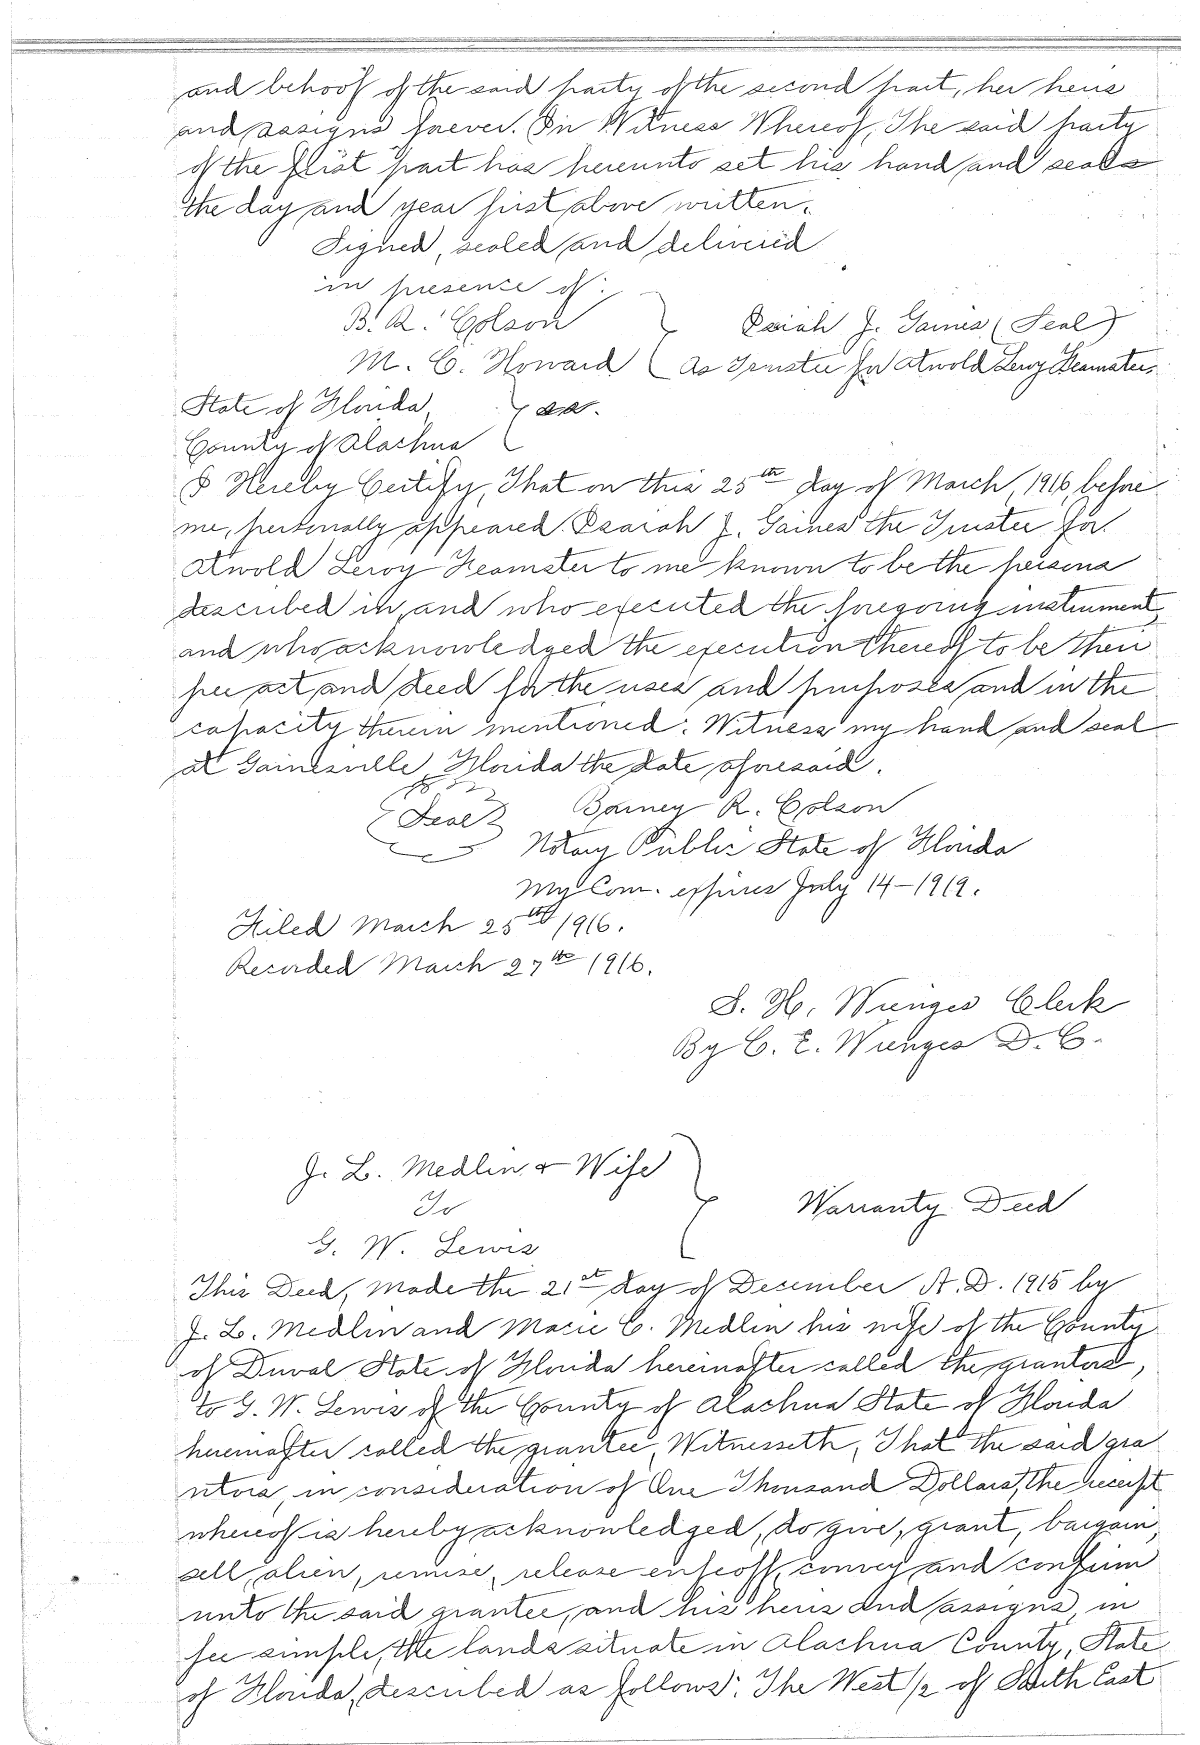 and behoof of the said party of the second part, her heirs
and assigns forever. In Witness Whereof, The said party
of the first part has hereunto set his hand and seals
the day and year first above written.
Signed, sealed and delivered
in presence of:
B. R. Colson
Isaiah J. Gaines (Seal)
M. C. Howard
As Trustee for Atwold Leroy Feamster.
State of Florida,
County of Alachua
ss.
I Hereby Certify, That on this 25th day of March, 1916, before
me, personally appeared Isaiah J. Gaines the Trustee for
Atwold Leroy Feamster to me known to be the persons
described in, and who executed the foregoing instrument,
and who acknowledged the execution thereof to be their
free act and deed for the uses and purposes and in the
capacity therein mentioned: Witness my hand and seal
at Gainesville, Florida the date aforesaid.
(Seal) Barney R. Colson
Notary Public State of Florida
My Com. expires July 14-1919.
Filed March 25th 1916.
Recorded March 27th 1916.
S. H. Wienges Clerk
By C. E. Wienges D. C.
J. L. Medlin & Wife
To
Warranty Deed
G. W. Lewis
This Deed, Made the 21st day of December A.D. 1915 by
J. L. Medlin and Macie C. Medlin his wife of the County
of Duval State of Florida hereinafter called the grantors,
to G. W. Lewis of the County of Alachua State of Florida
hereinafter called the grantee, Witnesseth, That the said gra
ntors, in consideration of One Thousand Dollars, the receipt
whereof is hereby acknowledged, do give, grant, bargain,
sell, alien, remise, release enfeoff, convey and confirm
unto the said grantee, and his heirs and assigns, in
fee simple, the lands situate in Alachua County, State
of Florida, described as follows: The West 1/2 of South East